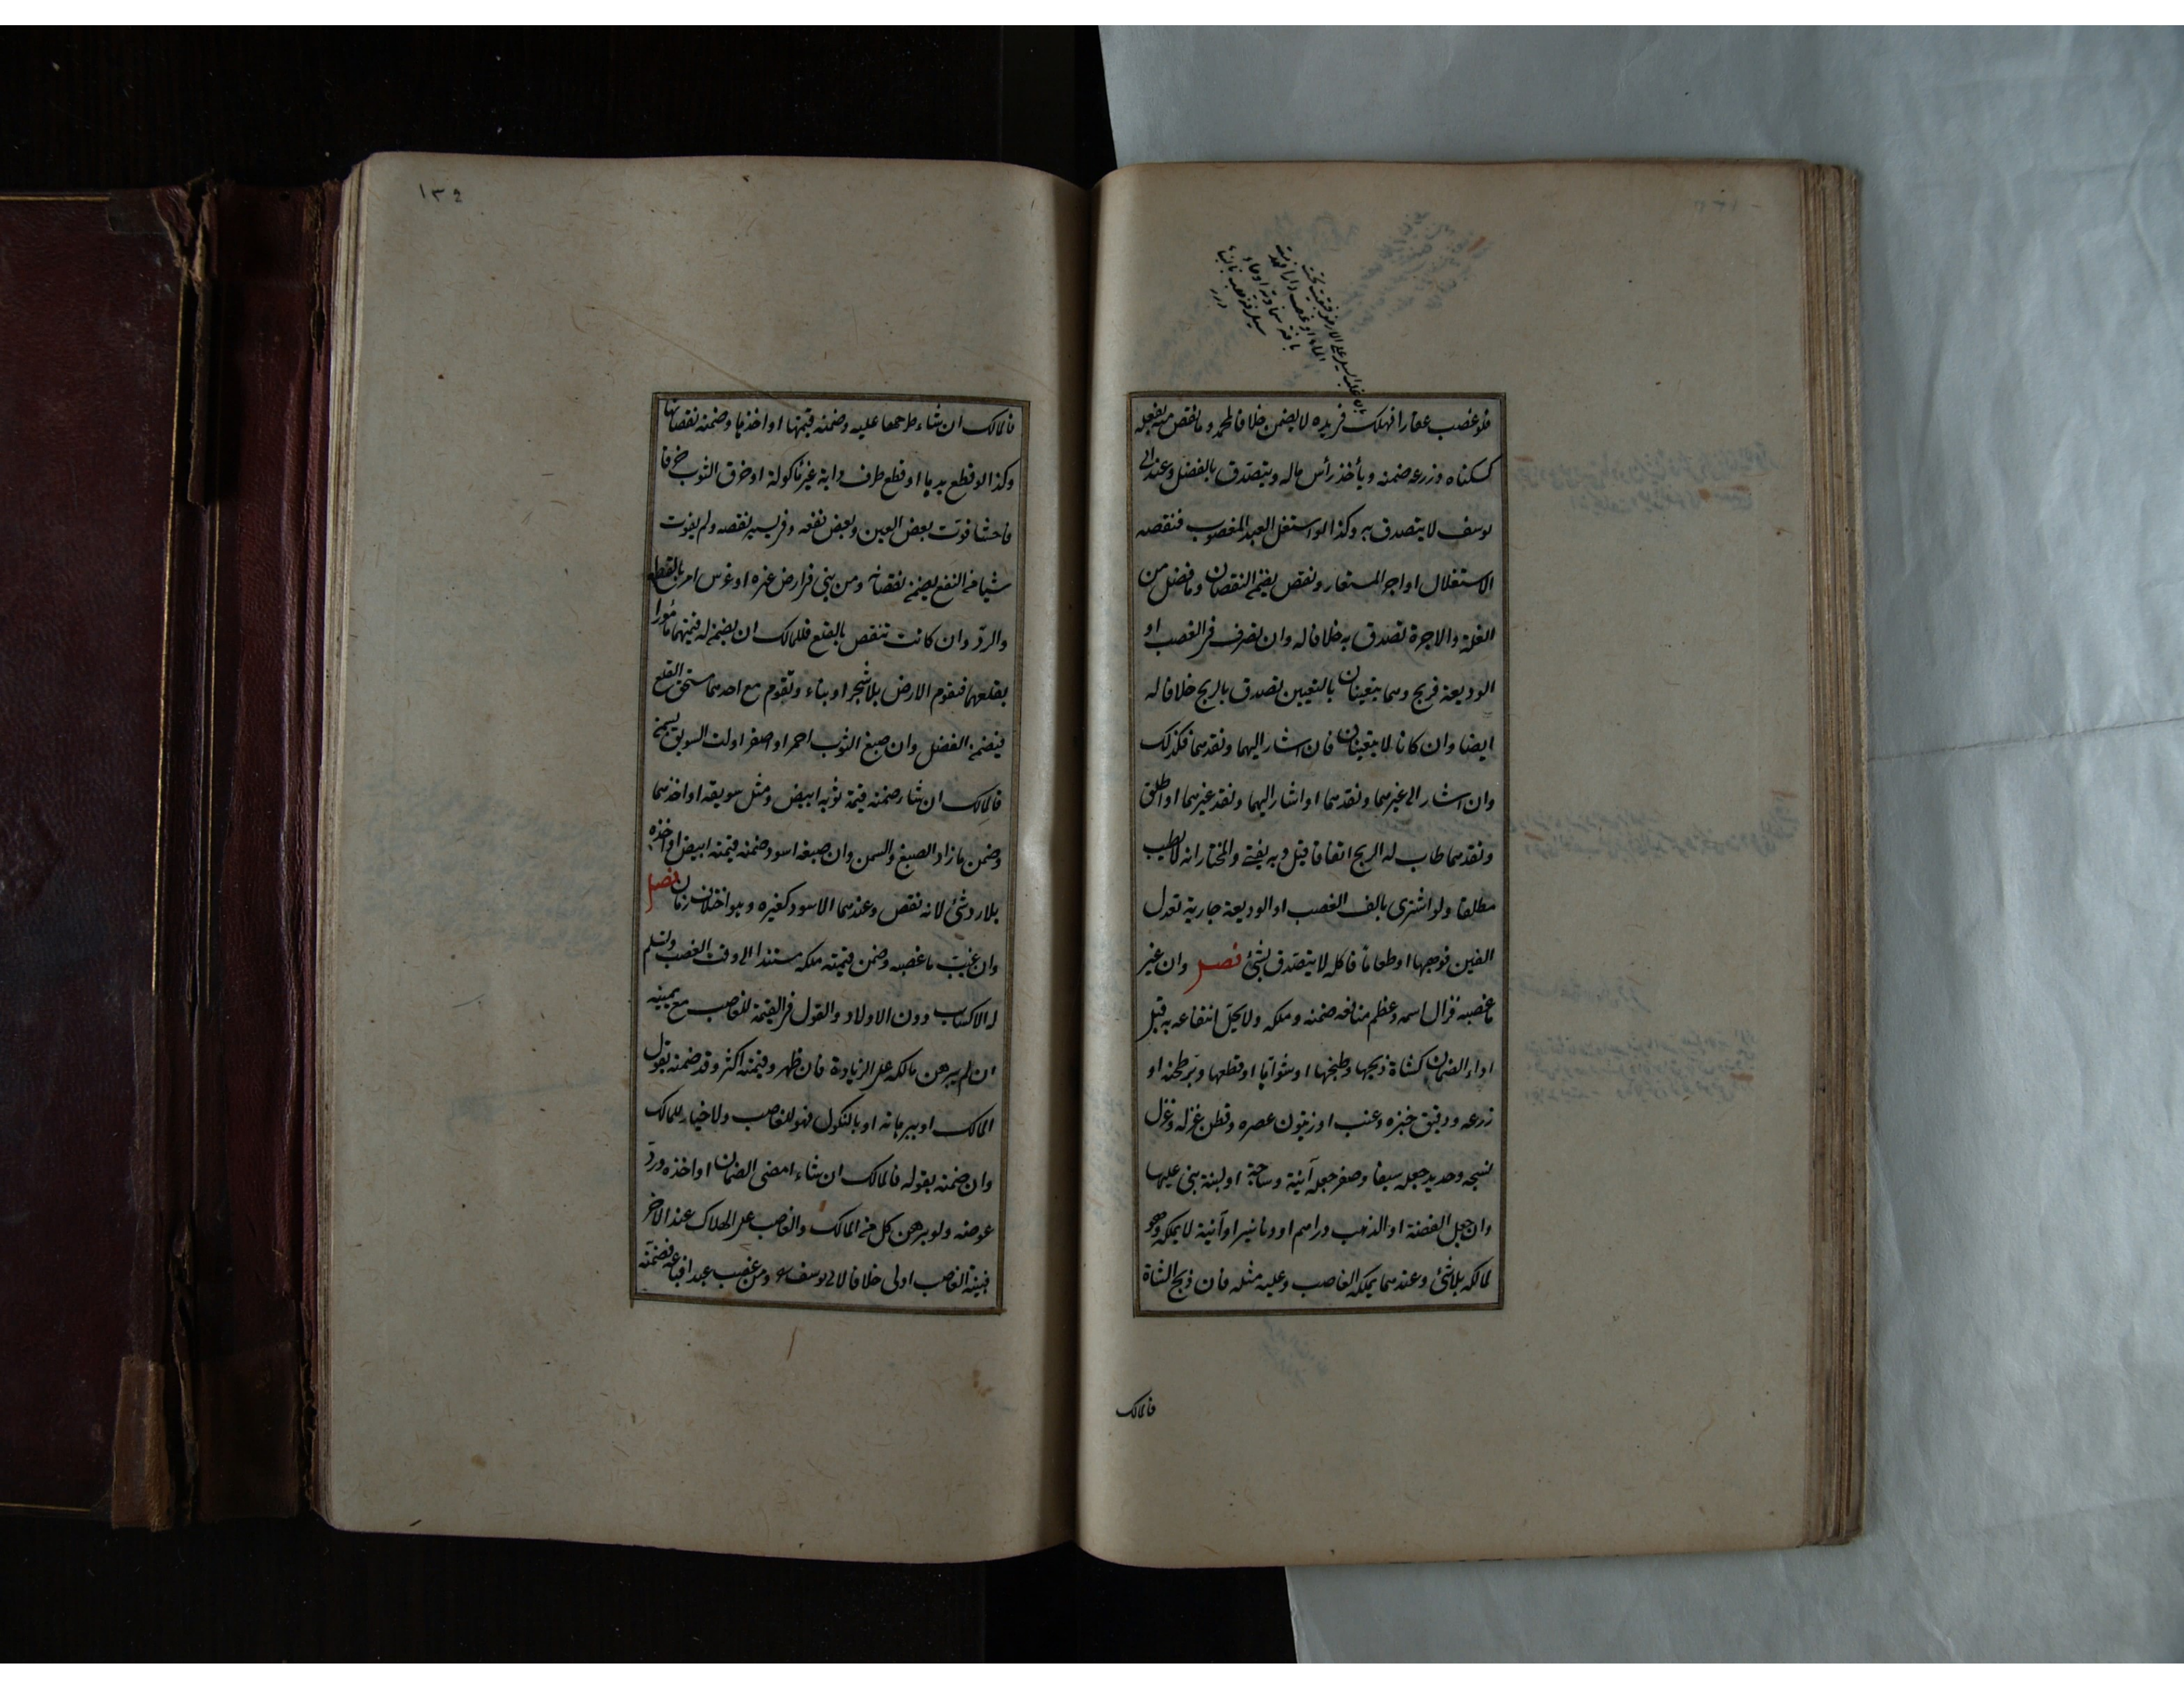 فلو غصب عقارا فهلك في يده لا يضمن خلافا لمحمد وما نقص منه بفعله
كسكناه وزرعه ضمنه ويأخذ رأس ماله ويتصدق بالفضل وعند ابى
يوسف لا يتصدق به وكذا لو استغل العبد المغصوب فنقصه
الاستغلال او اجر المستعار ونقص يضمن النقصان وما فضل من
الغلة والاجرة تصدق به خلافا له وان تصرف في الغصب او
الوديعة فربح وهما يتعينان بالتعيين تصدق بالربح خلافا له
ايضا وان كانا لا يتعينان فان اشار اليهما ونقدهما فكذلك
وان اشار الى غيرهما ونقدهما او اشار اليهما ونقد غيرهما او اطلق
ونقدهما طاب له الربح اتفاقا قيل وبه يفتى والمختار انه لا يطيب
مطلقا ولو اشترى بالف الغصب او الوديعة جارية تعدل
الفين فوهبها او طعاما فاكله لا يتصدق بشئ فصل وان غير
ما غصبه فزال اسمه وعظم منافعه ضمنه وملكه ولا يحل انتفاعه به قبل
اداء الضمان كشاة ذبحها وطبخها او شواها او قطعها وبر طحنه او
زرعه ودقيق خبزه وعنب او زيتون عصره وقطن غزله وغزل
نسجه وحديد جعله سيفا وصفر جعله آنية وساجة او لبنة بنى عليها
وان جعل الفضة او الذهب دراهم او دنانير او آنية لا يملكه وهو
لمالكه بلا شئ وعندهما يملكه الغاصب وعليه مثله فان ذبح الشاة
فالمالك
١٣٤
فالمالك ان شاء طرحها عليه وضمنه قيمتها او اخذها وضمنه نقصانها
وكذا لو قطع يدها او قطع طرف دابة غير مأكولة او خرق الثوب خرقا
فاحشا فوت بعض العين وبعض نفعه وفي يسير نقصه ولم يفوت
شيأ من النفع يضمن نقصانه ومن بنى في ارض غيره او غرس امر بالقلع
والرد وان كانت تنقص بالقلع فللمالك ان يضمن له قيمتهما مأمورا
بقلعهما فتقوم الارض بلا شجر او بناء وتقوم مع احدهما مستحق القلع
فيضمن الفضل وان صبغ الثوب احمر او اصفر او لت السويق بسمن
فالمالك ان شاء ضمنه قيمة ثوبه ابيض ومثل سويقه او اخذهما
وضمن ما زاد الصبغ والسمن وان صبغه اسود ضمنه قيمته ابيض او اخذه
بلا رد شئ لانه نقص وعندهما الاسود كغيره وهو اختلاف زمان فصل
وان غيب ما غصبه وضمن قيمته ملكه مستندا الى وقت الغصب وتسلم
له الاكساب دون الاولاد والقول في القيمة للغاصب مع يمينه
ان لم يبرهن مالكه على الزيادة فان ظهر وقيمته اكثر وقد ضمنه بقول
المالك او ببرهانه او بالنكول فهو للغاصب ولا خيار للمالك
وان ضمنه بقوله فالمالك ان شاء امضى الضمان او اخذه ورد
عوضه ولو برهن كل من المالك والغاصب على الهلاك عند الاخر
فبينة الغاصب اولى خلافا لابى يوسف ومن غصب عبدا فباعه فضمنه